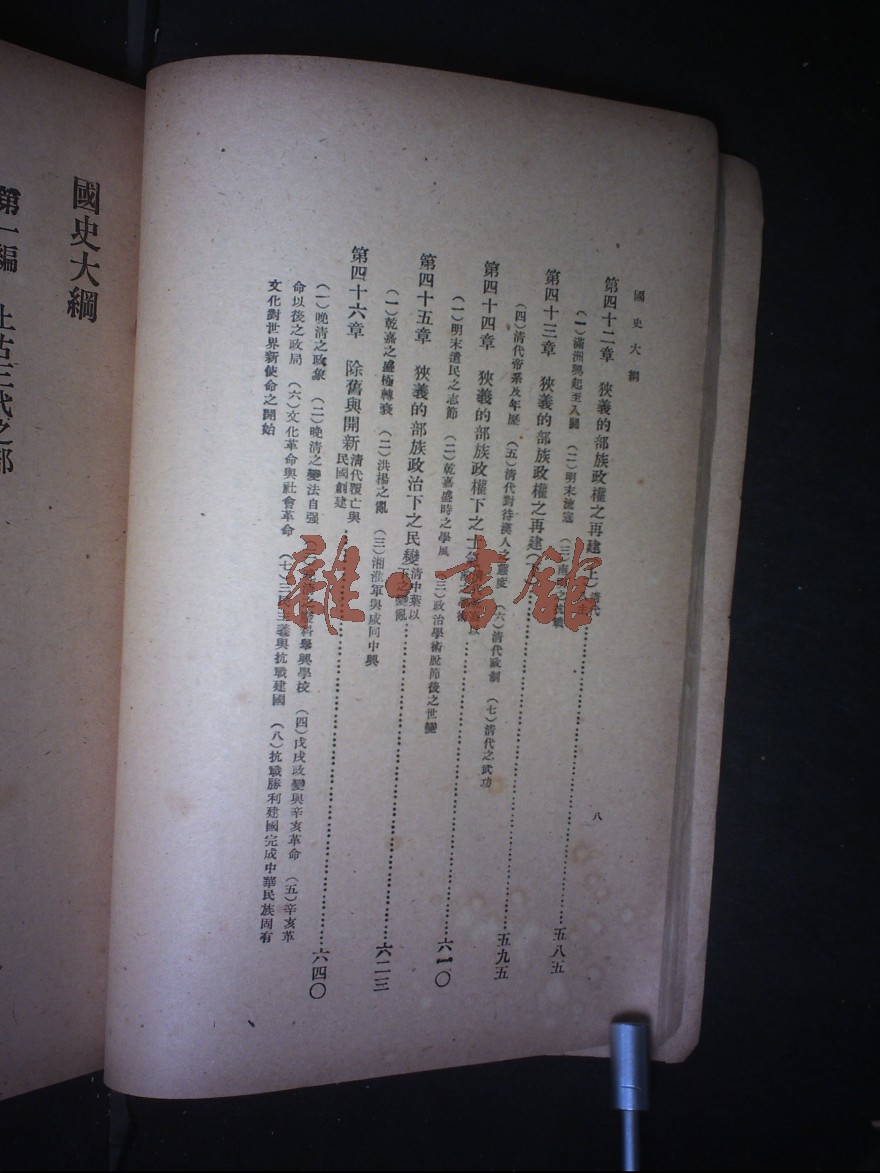 國史大綱
八
第四十二章　狹義的部族政權之再建（上）清代
（一）滿洲興起至入關　（二）明末流寇　（三）南
第四十三章　狹義的部族政權之再建（
（四）清代帝系及年歷　（五）清代對待漢人之態度　（六）清代政制　（七）清代之武功
第四十四章　狹義的部族政權下之士
（一）明末遺民之志節　（二）乾嘉盛時之學風　（三）政治學術脫節後之世變
第四十五章　狹義的部族政治下之民變清中葉以下之變亂
（一）乾嘉之盛極轉衰　（二）洪楊之亂　（三）湘淮軍與咸同中興
第四十六章　除舊與開新清代覆亡與民國創建
（一）晚清之政象　（二）晚清之變法自强　科舉興學校　（四）戊戌政變與辛亥革命　（五）辛亥革
命以後之政局　（六）文化革命與社會革命　（七）三民主義與抗戰建國　（八）抗戰勝利建國完成中華民族固有
文化對世界新使命之開始
五八五
五九五
六一〇
六二三
六四〇
國史大綱
第一編　上古三代之部
雜·書館